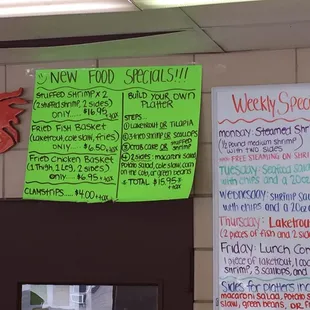 NEW FOOD SPECIALS!!!
STUFFED SHRIMP x 2
(2 STUFFED SHRIMP, 2 SIDES)
ONLY..... $16.95 +TAX
FRIED FISH BASKET
(LAKETROUT, COLE SLAW, FRIES)
ONLY..... $6.50 +TAX
FRIED CHICKEN BASKET
(1 THIGH, 1 LEG, 2 SIDES)
ONLY..... $6.95 +TAX
CLAMSTRIPS... $4.00 +TAX
BUILD YOUR OWN
PLATTER
STEPS...
① LAKETROUT OR TILAPIA
② 3 FRIED SHRIMP OR SCALLOPS
③ CRAB CAKE OR STUFFED SHRIMP
④ 2 SIDES: MACARONI SALAD
POTATO SALAD, COLE SLAW, CORN
ON THE COB, OR GREEN BEANS
= TOTAL $15.95 +TAX
WEEKLY SPECI
MONDAY: STEAMED SHR
(1/2 POUND MEDIUM SHRIMP)
WITH TWO
* FREE STEAMING ON SHRI
TUESDAY:
WITH CHIPS AND A 20O
WEDNESDAY: SHRIMP SA
WITH CHIPS AND A 20OZ
THURSDAY: LAKETROU
(2 PIECES OF FISH AND
FRIDAY: LUNCH COM
1 PIECE OF LAKETROUT, 1
SHRIMP, 3 SCALLOPS, AND
SIDES FOR PLATTERS INC
MACARONI SALAD, POTATO S
SLAW, GREEN BEANS, OR F